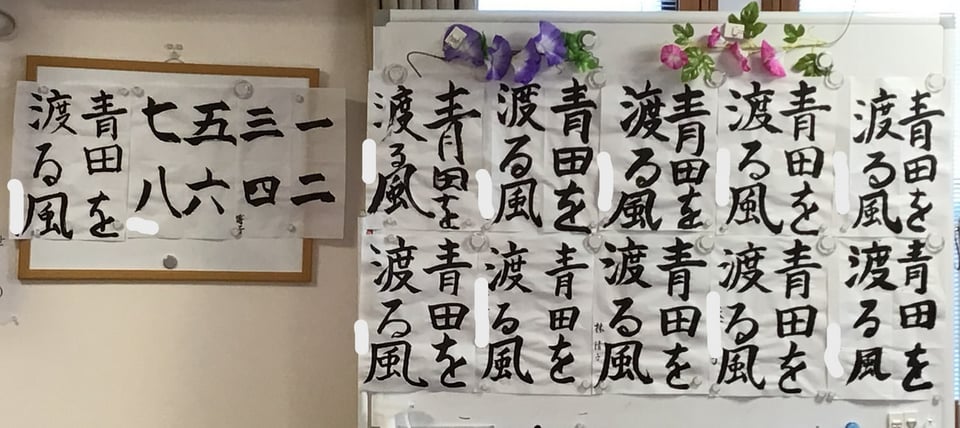 青田を
渡る風
一二
三四
五六
七八
青田を
渡る風
青田を
渡る風
青田を
渡る風
青田を
渡る風
青田を
渡る風
青田を
渡る風
青田を
渡る風
青田を
渡る風
青田を
渡る風
青田を
渡る風